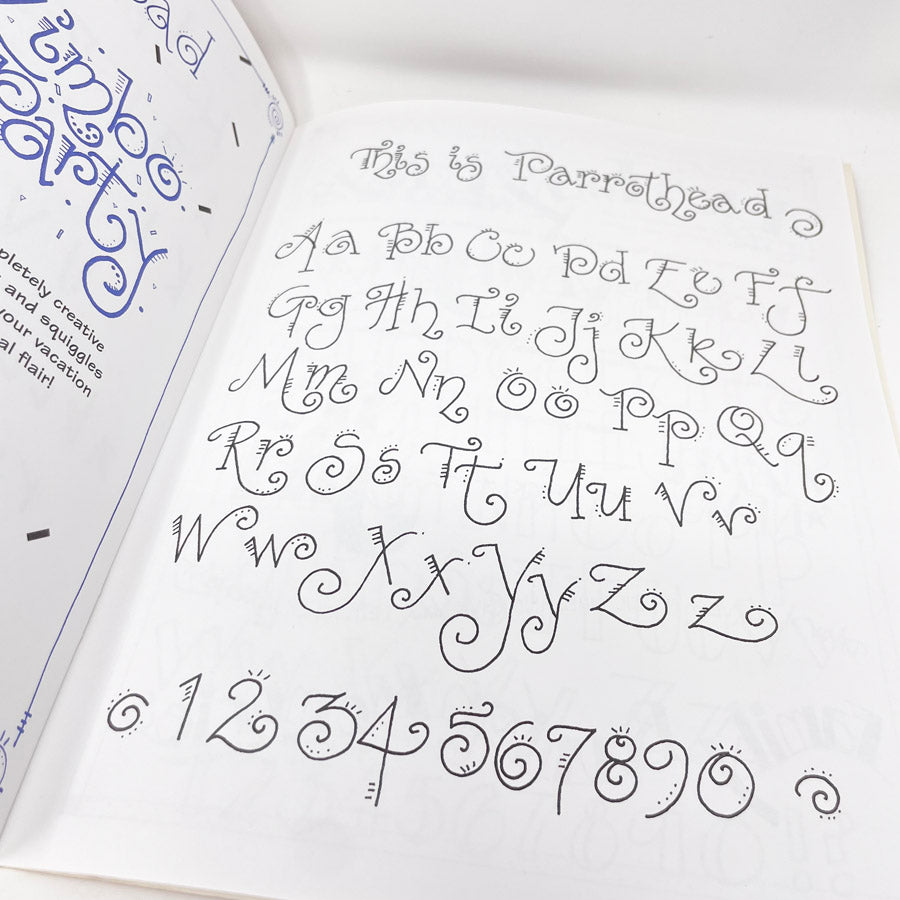 ad
Limbo
Party
pletely creative
and squiggles
your vacation
al flair!
This is Parrothead
Aa Bb Cc Dd Ee Ff
Gg Hh Ii Jj Kk Ll
Mm Nn Oo Pp Qq
Rr Ss Tt Uu Vv
Ww Xx Yy Zz
1 2 3 4 5 6 7 8 9 0